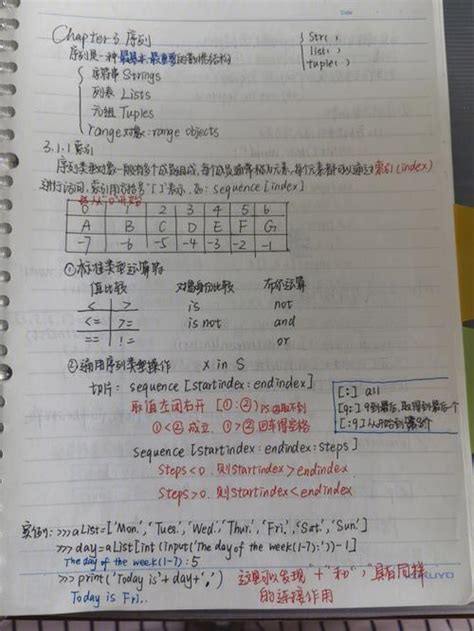 Date
Chapter 3 序列
序列是一种最基本最重要的数据结构
{ str( )
list( )
tuple( )
{ 字符串 Strings
列表 Lists
元组 Tuples
range对象: range objects
3.1.1 索引
序列类型对象一般有多个成员组成,每个成员通常称为元素,每个元素都可以通过索引(index)
进行访问,索引用方括号"[ ]"表示,如: sequence[index]
从0开始
0 1 2 3 4 5 6
A B C D E F G
-7 -6 -5 -4 -3 -2 -1
①标准类型运算符
值比较 对象身份比较 布尔运算
< > is not
<= >= is not and
== != or
②通用序列类型操作 x in S
切片: sequence [startindex: endindex]
取值左闭右开 [①:②) ②取不到
①<②成立, ①>②回车得空格
[:] all
[9:] 9到最后,取得到最后一个
[:9]从开始到第8个
sequence [startindex: endindex: steps]
steps<0, 则startindex>endindex
steps>0, 则startindex<endindex
实例: >>>aList=['Mon.','Tues.','Wed.','Thur.','Fri.','Sat.','Sun.']
>>> day=aList[int(input('The day of the week(1-7):'))-1]
The day of the week(1-7):5
>>> print('Today is'+day+'.') 这里可以发现"+"和","具有同样
的连接作用
Today is Fri..
KUYO